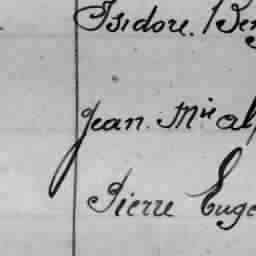 Isidore. Ben
Jean. Mie al
Pierre Euge